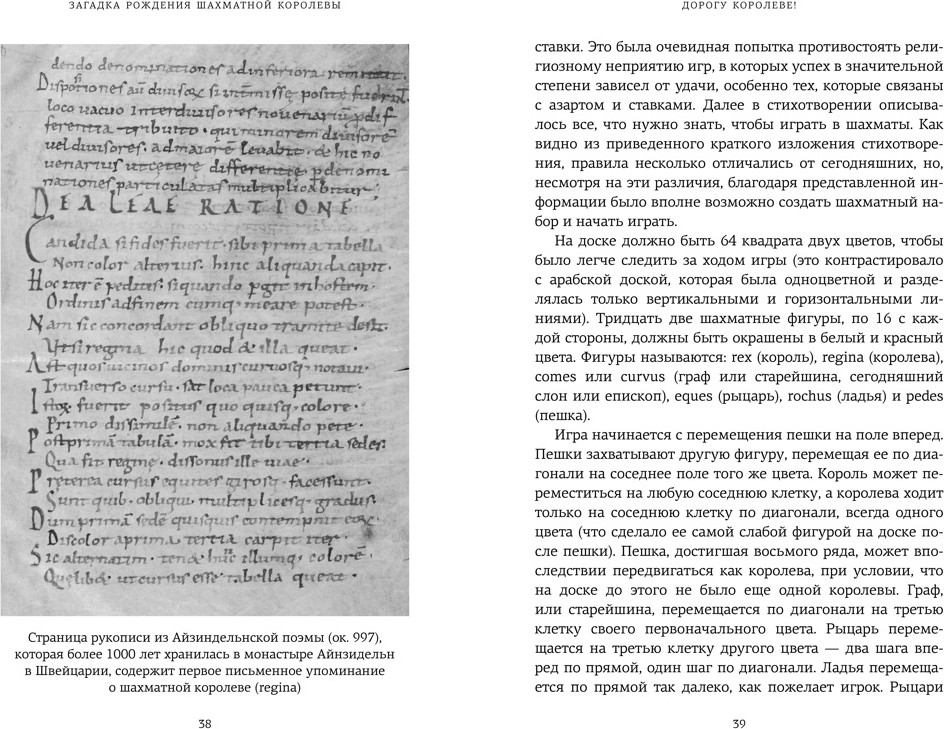 ЗАГАДКА РОЖДЕНИЯ ШАХМАТНОЙ КОРОЛЕВЫ
dendo denominationes ad inferiora
loco vacuo
DE ALEAE RATIONE
Candida si fides fuerit sibi prima tabella
Non color alterius hinc aliquanda capit
Ordinus ad finem cumq; meare potest
Nam sic concordant obliquo tramite
Ut si regina hic quod & illa queat
Transverso cursu sat loca pauca petunt
fuerit positus quo quisq; colore
Primo non aliquando pete
Qua fit regine dissonus ille viae
Preterea cursus equites
Sunt quib. obliqui multiplicesq; gradus
Dum prima sede quisquis contempnit
Discolor a prima tertia carpit iter
Sic alternatim
ut cursus esse tabella queat
Страница рукописи из Айзиндельнской поэмы (ок. 997),
которая более 1000 лет хранилась в монастыре Айнзидельн
в Швейцарии, содержит первое письменное упоминание
о шахматной королеве (regina)
38
ДОРОГУ КОРОЛЕВЕ!
ставки. Это была очевидная попытка противостоять рели-
гиозному неприятию игр, в которых успех в значительной
степени зависел от удачи, особенно тех, которые связаны
с азартом и ставками. Далее в стихотворении описыва-
лось все, что нужно знать, чтобы играть в шахматы. Как
видно из приведенного краткого изложения стихотворе-
ния, правила несколько отличались от сегодняшних, но,
несмотря на эти различия, благодаря представленной ин-
формации было вполне возможно создать шахматный на-
бор и начать играть.
На доске должно быть 64 квадрата двух цветов, чтобы
было легче следить за ходом игры (это контрастировало
с арабской доской, которая была одноцветной и разде-
лялась только вертикальными и горизонтальными ли-
ниями). Тридцать две шахматные фигуры, по 16 с каж-
дой стороны, должны быть окрашены в белый и красный
цвета. Фигуры называются: rex (король), regina (королева),
comes или curvus (граф или старейшина, сегодняшний
слон или епископ), eques (рыцарь), rochus (ладья) и pedes
(пешка).
Игра начинается с перемещения пешки на поле вперед.
Пешки захватывают другую фигуру, перемещая ее по диа-
гонали на соседнее поле того же цвета. Король может пе-
реместиться на любую соседнюю клетку, а королева ходит
только на соседнюю клетку по диагонали, всегда одного
цвета (что сделало ее самой слабой фигурой на доске по-
сле пешки). Пешка, достигшая восьмого ряда, может впо-
следствии передвигаться как королева, при условии, что
на доске до этого не было еще одной королевы. Граф,
или старейшина, перемещается по диагонали на третью
клетку своего первоначального цвета. Рыцарь переме-
щается на третью клетку другого цвета — два шага впе-
ред по прямой, один шаг по диагонали. Ладья перемеща-
ется по прямой так далеко, как пожелает игрок. Рыцари
39